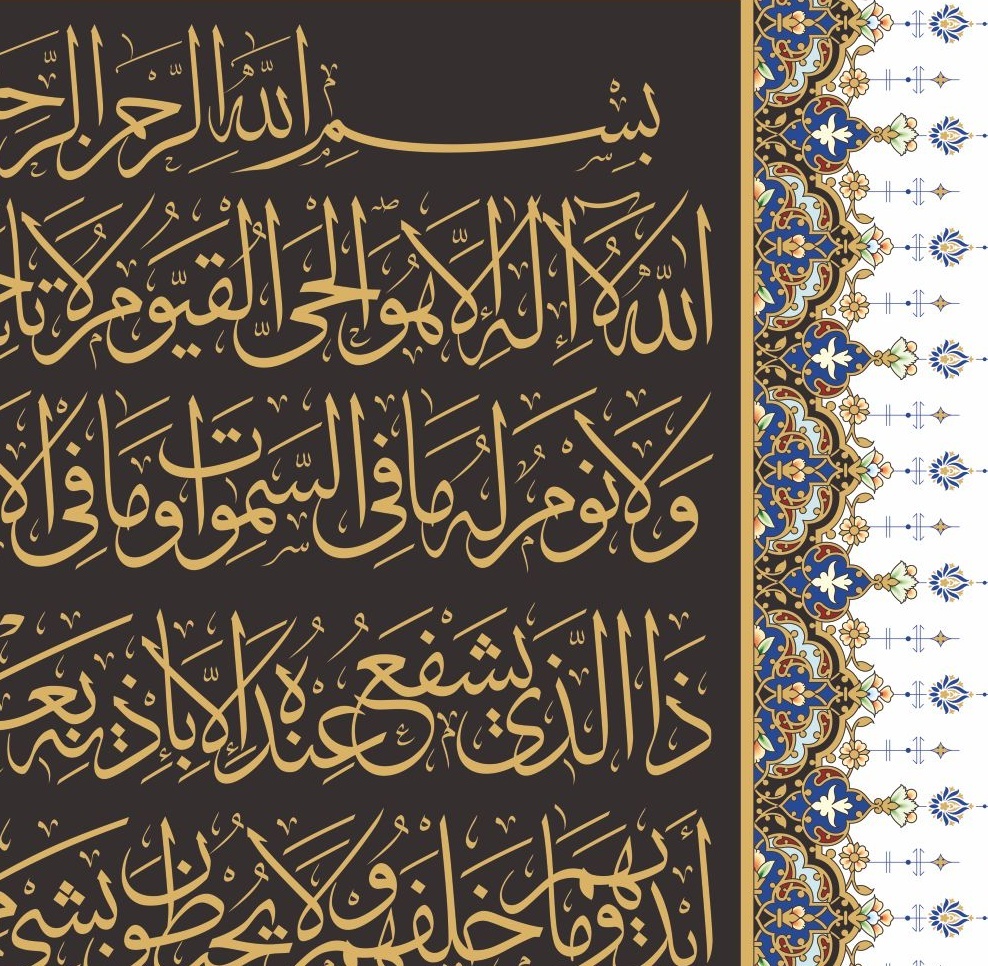 بِسْمِ اللّٰهِ الرَّحْمٰنِ الرَّحِ
اَللّٰهُ لَآ اِلٰهَ اِلَّا هُوَ الْحَىُّ الْقَيُّوْمُ لَا تَاْخُ
وَلَا نَوْمٌ لَهُ مَا فِى السَّمٰوَاتِ وَمَا فِى الْاَ
ذَا الَّذِى يَشْفَعُ عِنْدَهُ اِلَّا بِاِذْنِهِ يَعْ
اَيْدِيْهِمْ وَمَا خَلْفَهُمْ وَلَا يُحِيْطُوْنَ بِشَىْءٍ